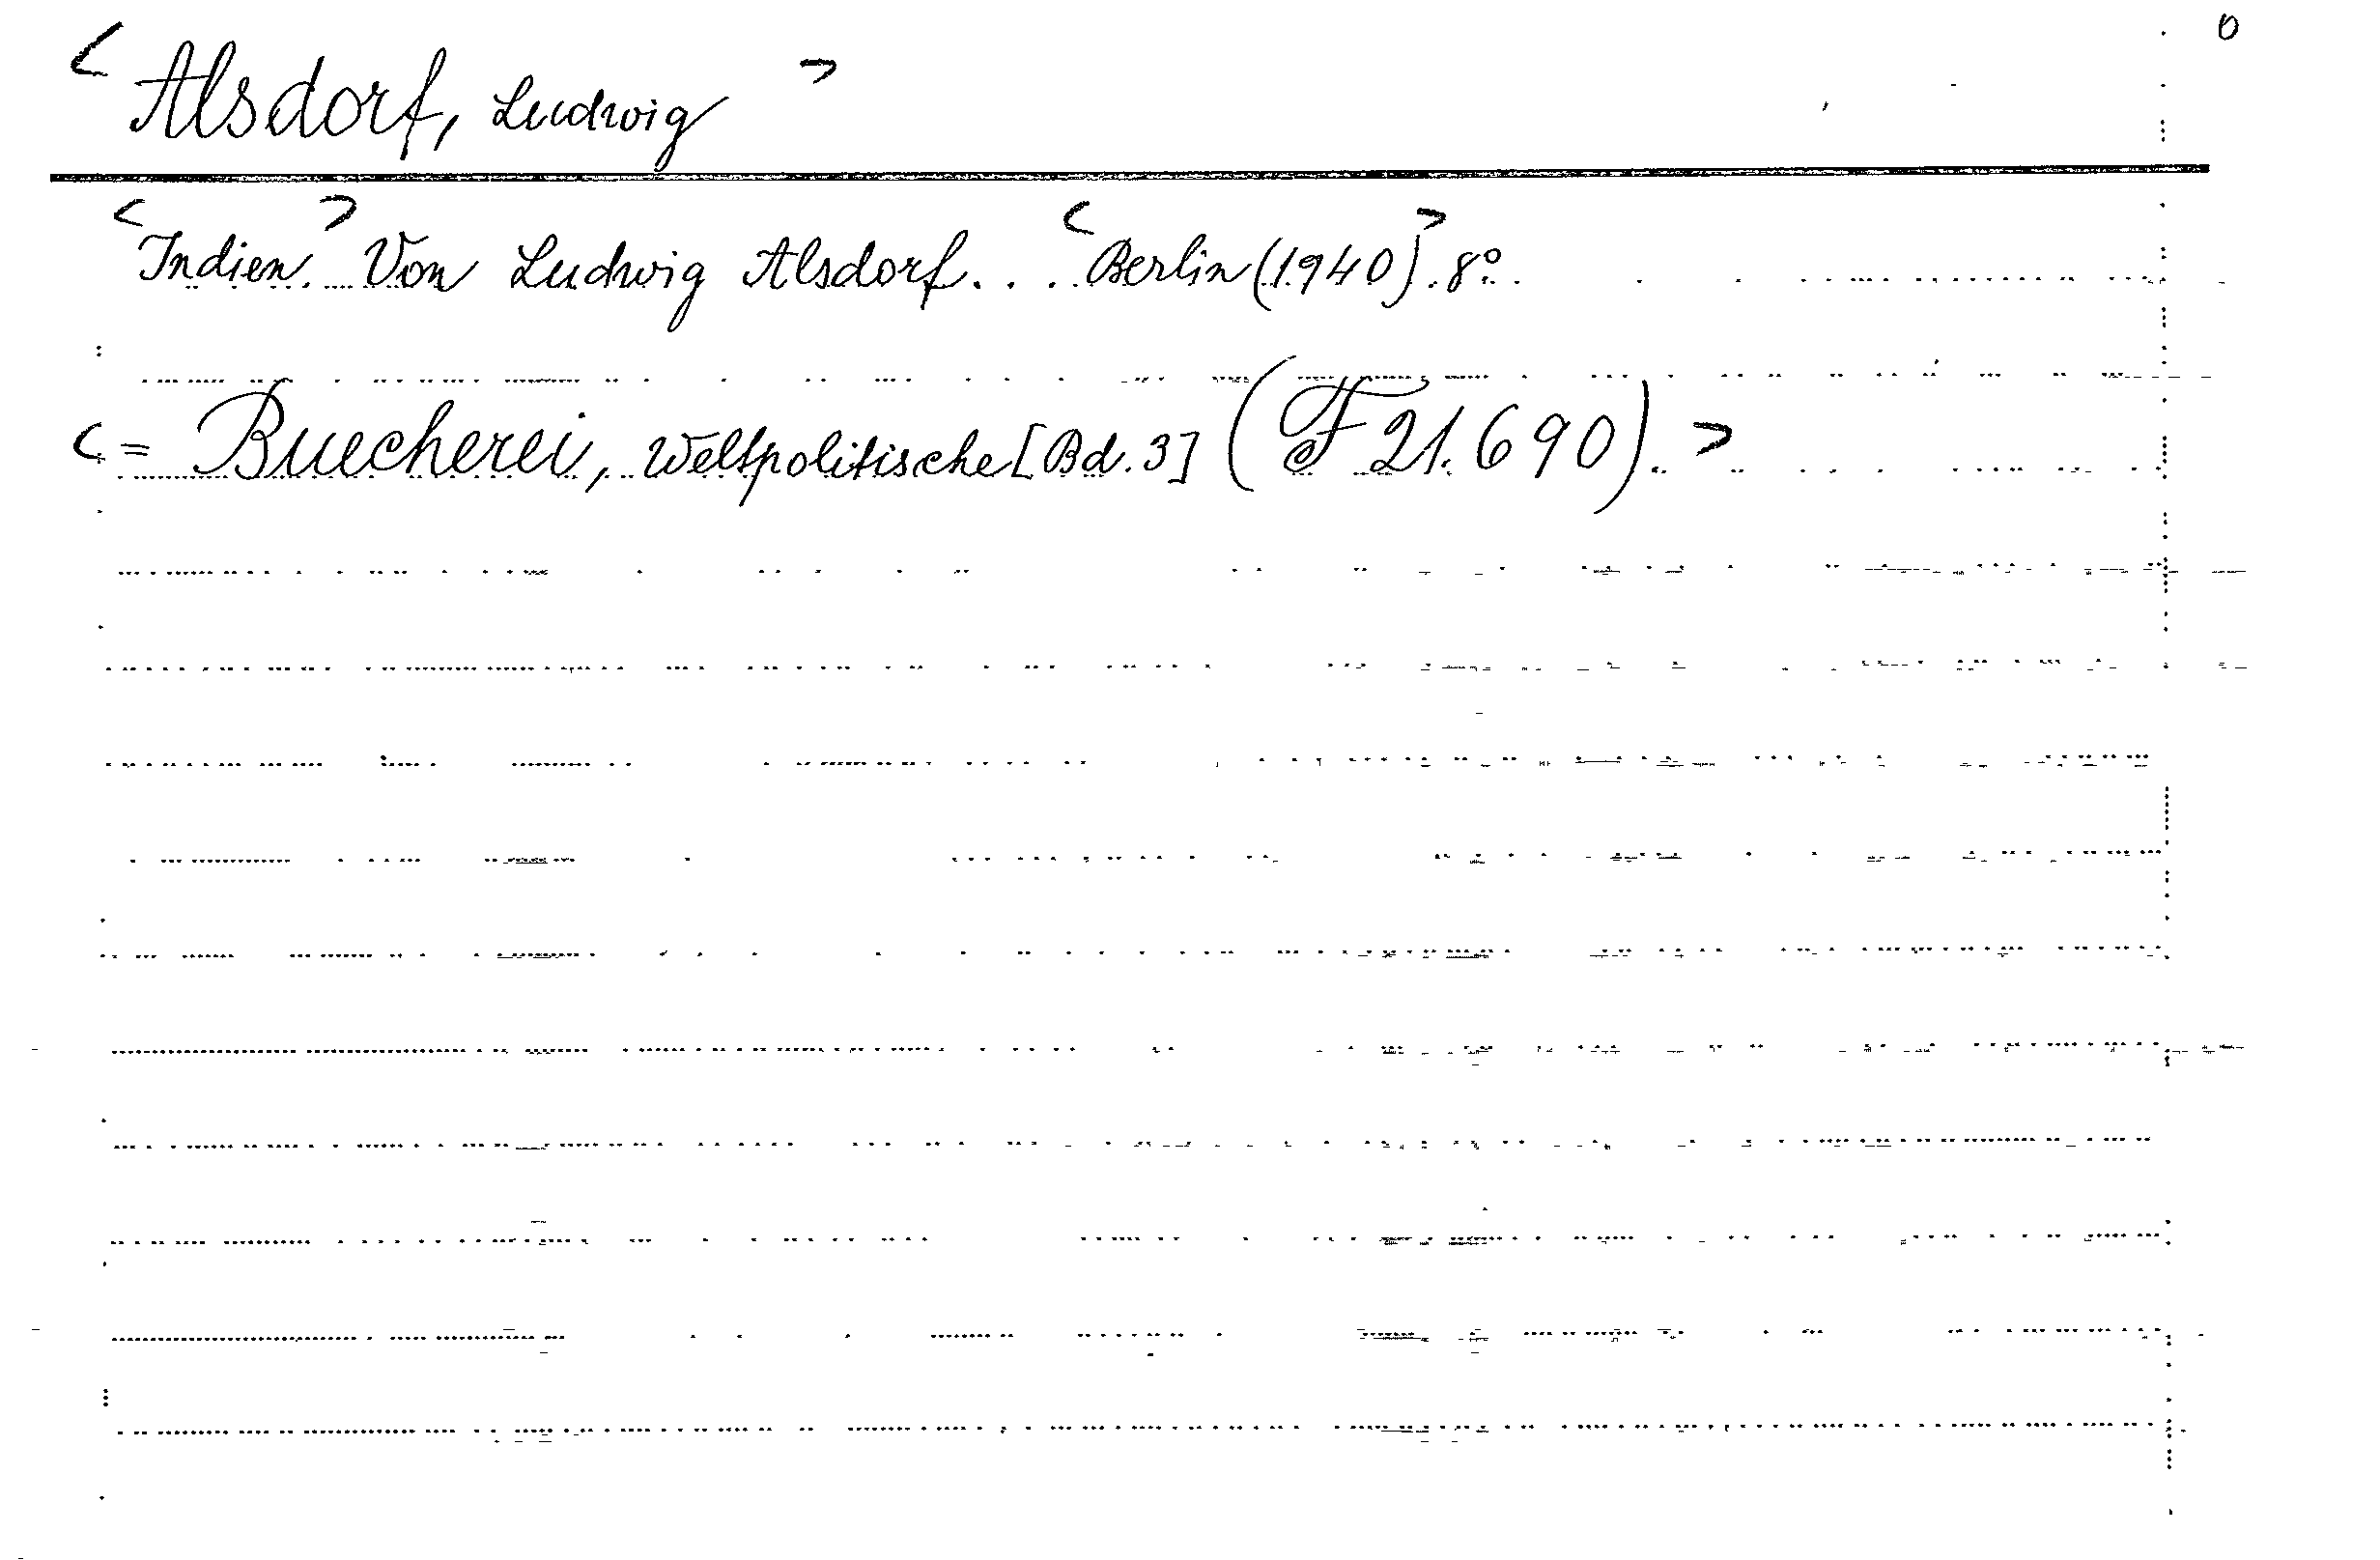 0
< Alsdorf, Ludwig >
<Indien.> Von Ludwig Alsdorf... <Berlin (1940)>. 8°.
<= Buecherei, Weltpolitische [Bd. 3] (F 21.690). >